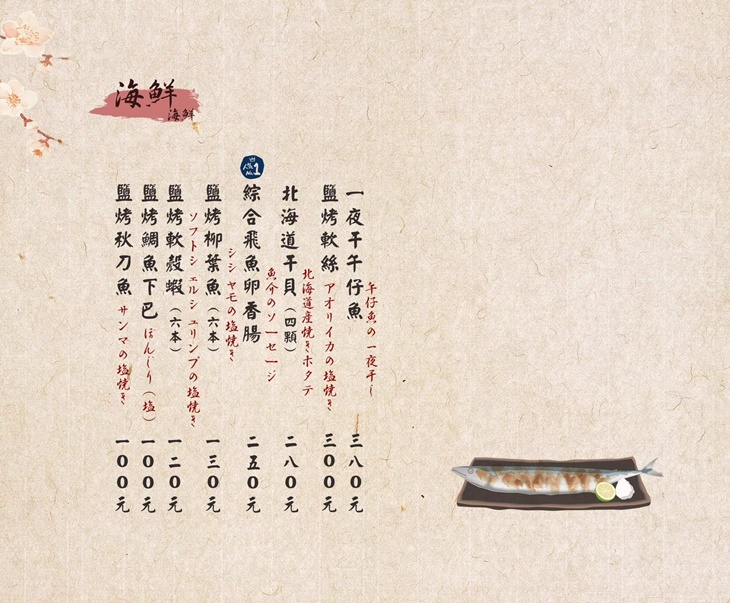 海鮮
海鮮
一夜干午仔魚
午仔魚の一夜干し
三八０元
鹽烤軟絲
アオリイカの塩焼き
三００元
北海道干貝（四顆）
北海道産焼きホタテ
二八０元
人気No.1
綜合飛魚卵香腸
魚介のソーセージ
二五０元
鹽烤柳葉魚（六本）
シシャモの塩焼き
一三０元
鹽烤軟殼蝦（六本）
ソフトシェルシュリンプの塩焼き
一二０元
鹽烤鯛魚下巴
ぼんじり（塩）
一００元
鹽烤秋刀魚
サンマの塩焼き
一００元